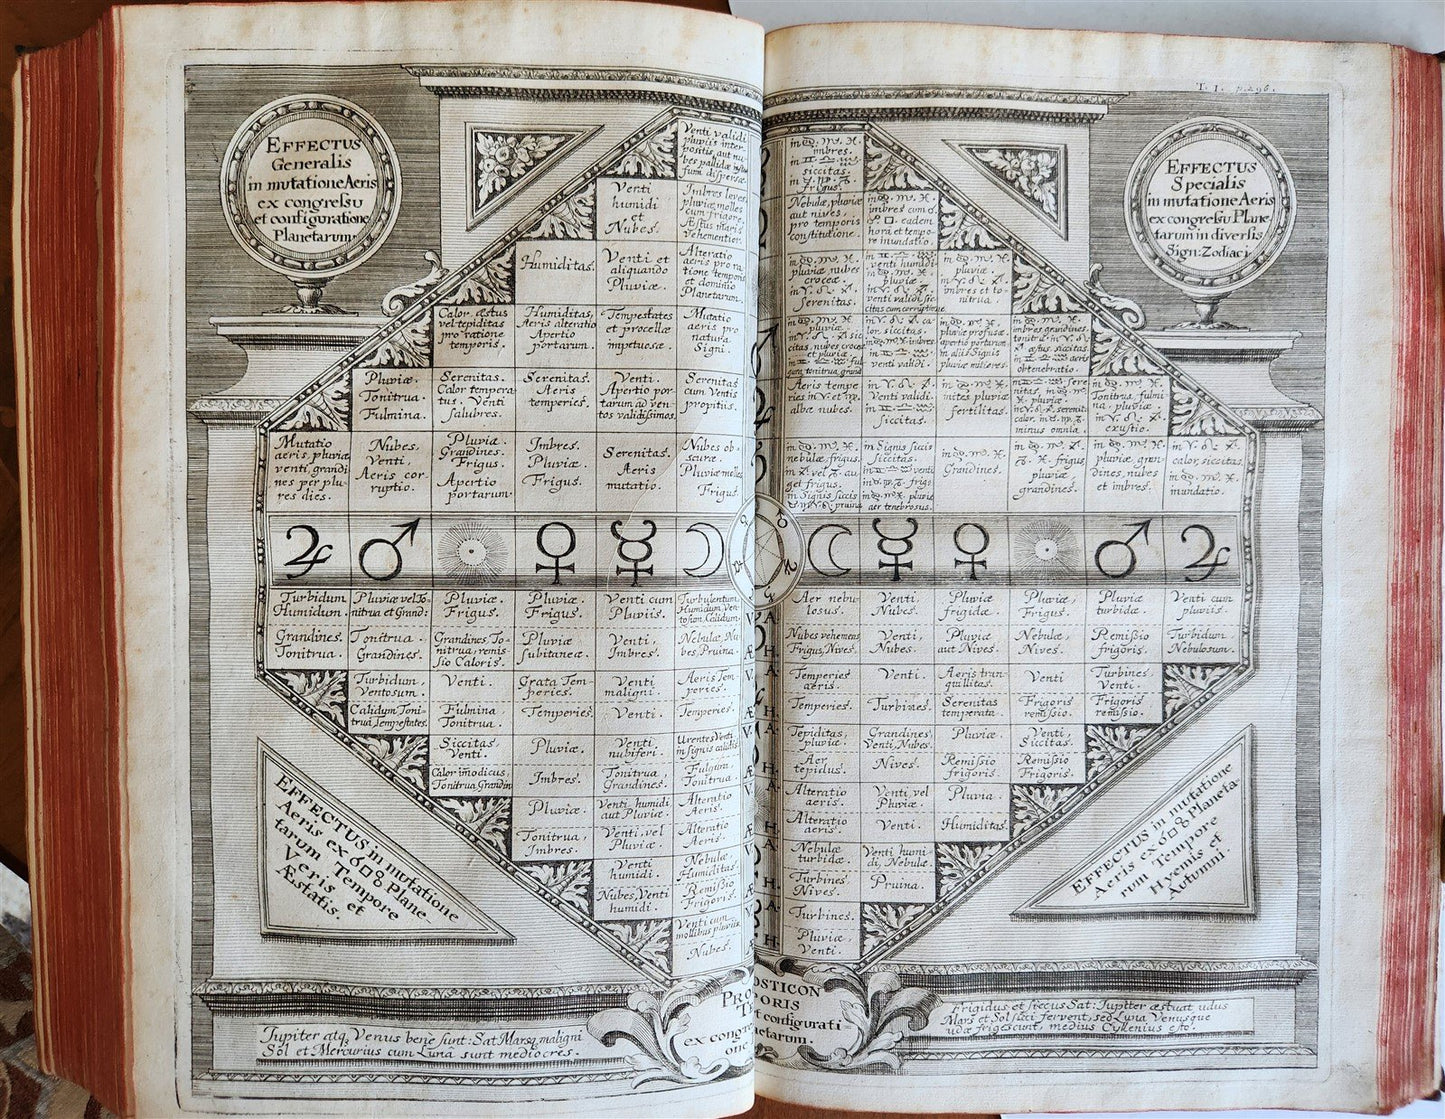 T. I. p. 296.
EFFECTUS
Generalis
in mutatione Aeris
ex congressu
et configuratione
Planetarum.
EFFECTUS
Specialis
in mutatione Aeris
ex congressu Plane
tarum in diversis
Sign: Zodiaci
Venti validi
pluviis inter
positis, aut nu
bes pallidæ
fumi dispersæ.
Venti
humidi
et
Nubes.
Imbres leves,
pluviæ molles
cum frigore,
Æstus maris
vehementior.
Humiditas.
Venti et
aliquando
Pluviæ.
Alteratio
aeris pro ra
tione temporis
et dominio
Planetarum.
Calor æstus
vel tepiditas
pro ratione
temporis.
Humiditas,
Aeris alteratio
Apertio
portarum.
Tempestates
et procellæ
impetuosæ.
Mutatio
aeris pro
natura
Signi.
Pluviæ.
Tonitrua.
Fulmina.
Serenitas.
Calor tempera
tus. Venti
salubres.
Serenitas.
Aeris
temperies.
Venti.
Apertio por
tarum ad ven
tos validissimos.
Serenitas
cum Ventis
propitiis.
Mutatio
aeris, pluviæ
venti, grandi
nes per plu
res dies.
Nubes.
Venti.
Aeris cor
ruptio.
Pluviæ.
Grandines.
Frigus.
Apertio
portarum
Imbres.
Pluviæ.
Frigus.
Serenitas.
Aeris
mutatio.
Nubes ob-
scuræ.
Pluviæ molles
Frigus.
in ♋. ♏. ♓.
imbres.
in ♊ ♎ ♒
siccitas.
in ♉. ♍. ♑.
frigus.
Nebulæ, pluviæ
aut nives,
pro temporis
constitutione.
in ♋. ♏. ♓.
imbres cum ☌.
☍ □. eadem
hora et tempo-
re inundatio.
in ♋ ♏. ♓.
pluviæ nubes
croceæ
in ♈. ♌. ♐.
Serenitas.
in ♋. ♏. ♓.
pluviæ.
in ♈. ♌. ♐.
imbres et to-
nitrua.
Aeris tempe
ries in ♈. et ♏.
albæ nubes.
in ♈. ♌. ♐.
Venti validi.
in ♊ ♎ ♒
siccitas.
in ♋. ♏. ♓.
pluviæ mites
fertilitas.
in ♋. ♏. ♓.
Tonitrua, fulmi
na. pluviæ.
in ♈. ♌. ♐.
exustio.
in ♋. ♏. ♓.
Grandines.
in ♋. ♏. ♓.
pluviæ gran
dines, nubes
et imbres.
in ♈. ♌. ♐.
calor, siccitas.
in ♋. ♏. ♓.
inundatio.
♃ ♂ ☉ ♀ ☿ ☽ ☽ ☿ ♀ ☉ ♂ ♃
Turbidum
Humidum.
Pluviæ vel To-
nitrua et Grand:
Pluviæ.
Frigus.
Pluviæ.
Frigus.
Venti cum
Pluviis.
Turbulentum
Humidum, Ven-
tosum, Calidum.
Aer nebu
losus.
Venti.
Nubes.
Pluviæ
frigidæ.
Pluviæ.
Frigus.
Pluviæ
turbidæ.
Venti cum
pluviis.
Grandines.
Tonitrua.
Tonitrua.
Grandines.
Grandines, To-
nitrua, remis-
sio Caloris.
Pluviæ
subitaneæ.
Venti,
Imbres.
Nebulæ, Nu-
bes, Pruina.
Nubes vehemens
Frigus, Nives.
Venti,
Nubes.
Pluviæ
aut Nives.
Nebulæ,
Nives.
Remissio
frigoris.
Turbidum
Nebulosum.
Turbidum,
Ventosum.
Venti.
Grata Tem-
peries.
Venti
maligni.
Aeris Tem-
peries.
Temperies
aëris.
Venti.
Aeris tran-
quillitas.
Venti
Turbines
Venti.
Calidum Toni-
trua, Tempestates.
Fulmina
Tonitrua.
Temperies.
Venti.
Temperies.
Temperies.
Turbines.
Serenitas
temperata.
Frigoris
remissio.
Frigoris
remissio.
Siccitas,
Venti.
Pluviæ.
Venti
nubiferi.
Urentes Venti
in signis calidis.
Tepiditas,
pluviæ.
Grandines.
Venti, Nubes.
Pluviæ.
Venti,
Siccitas.
Calor modicus,
Tonitrua, Grandin
Imbres.
Tonitrua,
Grandines.
Fulgura
Tonitrua.
Aer
tepidus.
Nives.
Remissio
frigoris.
Remissio
Frigoris.
Pluviæ.
Venti humidi
aut Pluviæ.
Alteratio
Aeris.
Alteratio
aeris.
Venti vel
Pluviæ.
Pluvia.
Tonitrua,
Imbres.
Venti, vel
Pluviæ.
Alteratio
Aeris.
Alteratio
aeris.
Venti.
Humiditas.
Venti
humidi.
Nebulæ,
Humiditas.
Nebulæ
turbidæ.
Venti humi
di, Nebulæ.
Nubes, Venti
humidi.
Remissio
Frigoris.
Turbines
Nives.
Pruina.
Venti cum
mollibus pluviis.
Turbines.
Nubes.
Pluviæ,
Venti.
EFFECTUS in mutatione
Aeris ex ☌□☍ Plane-
tarum Tempore
Veris et
Æstatis.
EFFECTUS in mutatione
Aeris ex ☌□☍ Planeta-
rum Tempore
Hyemis et
Autumni.
Jupiter atq, Venus benè sunt: Sat Marsq, maligni
Sol et Mercurius cum Luna sunt mediocres.
PRO OSTICON
TE PORIS
ex congre t configurati-
one netarum.
Frigidus et siccus Sat: Jupiter æstuat udus
Mars et Sol sicci fervent, sed Luna Venusque
udæ frigescunt, medius Cyllenius esto.